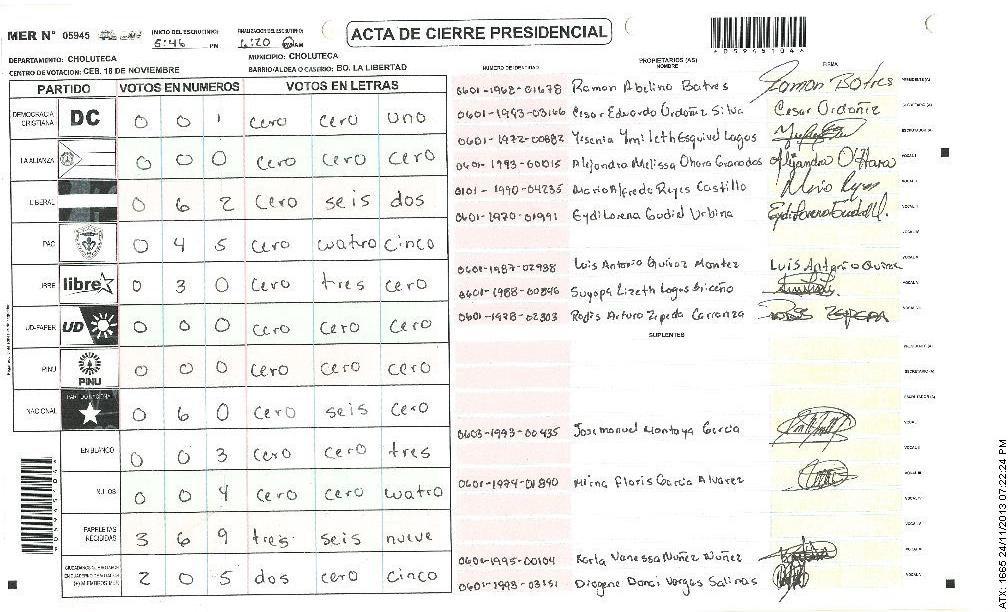 MER N° 05945
INICIO DEL ESCRUTINIO: 5:46 PM
FINALIZACION DEL ESCRUTINIO: 6:20 AM
ACTA DE CIERRE PRESIDENCIAL
DEPARTAMENTO: CHOLUTECA
MUNICIPIO: CHOLUTECA
CENTRO DE VOTACION: CEB. 18 DE NOVIEMBRE
BARRIO/ALDEA O CASERIO: BO. LA LIBERTAD
PARTIDO VOTOS EN NUMEROS VOTOS EN LETRAS
DEMOCRACIA CRISTIANA DC 0 0 1 cero cero uno
LA ALIANZA 0 0 0 cero cero cero
LIBERAL 0 6 2 cero seis dos
PAC 0 4 5 cero cuatro cinco
LIBRE libre 0 3 0 cero tres cero
UD-FAPER UD 0 0 0 cero cero cero
PINU PINU 0 0 0 cero cero cero
NACIONAL 0 6 0 cero seis cero
EN BLANCO 0 0 3 cero cero tres
NULOS 0 0 4 cero cero cuatro
PAPELETAS RECIBIDAS 3 6 9 tres seis nueve
2 0 5 dos cero cinco
NUMERO DE IDENTIDAD PROPIETARIOS (AS) NOMBRE FIRMA
0601-1962-01678 Ramon Abelino Batres Ramon Batres
0601-1993-03166 Cesar Eduardo Ordoñiz Silva Cesar Ordoñiz
0601-1972-00882 Yesenia Esquivel Lagos
0601-1993-00015 Alejandra Melissa Ohara Granados Alejandra O'Hara
0101-1990-04235 Mario Alfredo Reyes Castillo
0601-1970-01991 Eydi Lorena Gudiel Urbina
0601-1987-02938 Luis Antonio Quiroz Montez Luis Antonio
0601-1988-00846 Suyapa Lizeth Lagos Briceño
0601-1978-02303 Rodis Arturo Zepeda Carranza
SUPLENTES
0603-1993-00435 Jose manuel Montoya Garcia
0601-1974-01890 Mirna Floris Garcia Alvarez
0601-1995-00104 Karla Vanessa Nuñez Nuñez
0601-1993-03151 Diogene Donai Vargas Salinas
ATX: 1665 24/11/2013 07:22:24 PM